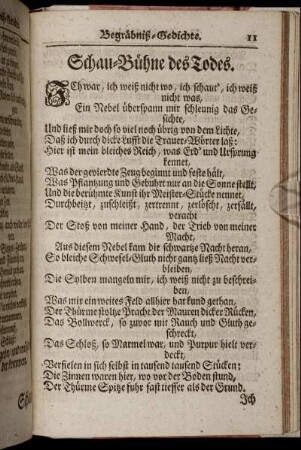 Begräbniß-Gedichte. 11
Schau-Bühne des Todes.
Ich war, ich weiß nicht wo, ich schaut', ich weiß
nicht was,
Ein Nebel überspann mir schleunig das Ge-
sichte,
Und ließ mir doch so viel noch übrig von dem Lichte,
Daß ich durch dicke Lufft die Trauer-Wörter laß:
Hier ist mein bleiches Reich, was Erd' und Ursprung
kennet,
Was der gevierdte Zeug beginnt und feste hält,
Was Pflantzung und Gebuhrt nur an die Sonne stellt,
Und die berühmte Kunst ihr Meister-Stücke nennet,
Durchbeitzt, zuschleißt, zertrennt, zerlöscht, zerfällt,
veracht
Der Stoß von meiner Hand, der Trieb von meiner
Macht,
Aus diesem Nebel kam die schwartze Nacht heran,
So bleiche Schwefel-Gluth nicht gantz ließ Nacht ver-
bleiben,
Die Sylben mangeln mir, ich weiß nicht zu beschrei-
ben,
Was mir ein weites Feld allhier hat kund gethan,
Der Thürme stoltze Pracht der Mauren dicker Rücken,
Das Bollwerck, so zuvor mit Rauch und Gluth ge-
schreckt,
Das Schloß, so Marmel war, und Purpur hielt ver-
deckt,
Verfielen in sich selbst in tausend tausend Stücken:
Die Zinnen waren hier, wo vor der Boden stund,
Der Thürme Spitze fuhr fast tieffer als der Grund.
Ich